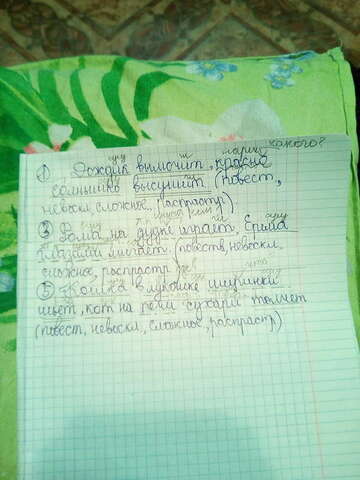 какого?
сущ гл нареч
① Дождик вымочит, красно
солнышко высушит (повест,
невоскл, сложное, распрастр)
③ Рома на дудке играет, Ерёма
глазами мигает. (повеств, невоскл.
сложное, распростр
⑤ Кошка в лукошке ширинки
шьёт, кот на печи сухари толчет
(повест, невоскл, сложно, распрастр)